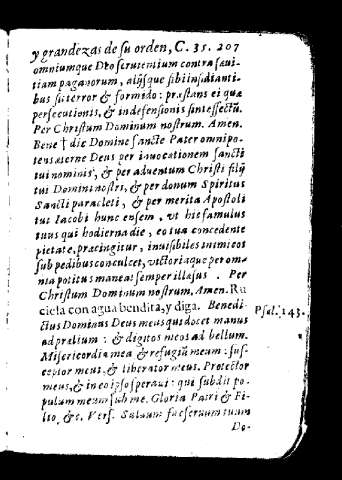 y grandezas de su orden, C. 35. 207
omniumque Deo scrutentium contra sævi-
tiam paganorum, alijsque sibi insidianti-
bus sit terror & formido: præstans ei quæ
persecutionis, & indefensionis sint effectũ.
Per Christum Dominum nostrum. Amen.
Bene † dic Domine sancte Pater omnipo-
tens æterne Deus per invocationem sancti
tui nominis, & per adventum Christi filij
tui Domini nostri, & per donum Spiritus
Sancti paracleti, & per merita Apostoli
tui Iacobi hunc ensem, vt hic famulus
tuus qui hodierna die, eo tua concedente
pietate, præcingitur, invisibiles inimicos
sub pedibus conculcet, victoriaque per om-
nia potitus maneat semper illæsus. Per
Christum Dominum nostrum, Amen. Ru
ciela con agua bendita, y diga. Benedi-
ctus Dominus Deus meus qui docet manus
ad prælium: & digitos meos ad bellum.
Psal. 143.
Misericordia mea & refugiũ meum: sus-
ceptor meus, & liberator meus. Protector
meus, & in eo ipso speravi: qui subdit po-
pulum meum sub me. Gloria Patri & Fi-
lio, &c. Vers. Saluum fac seruum tuum
Do-